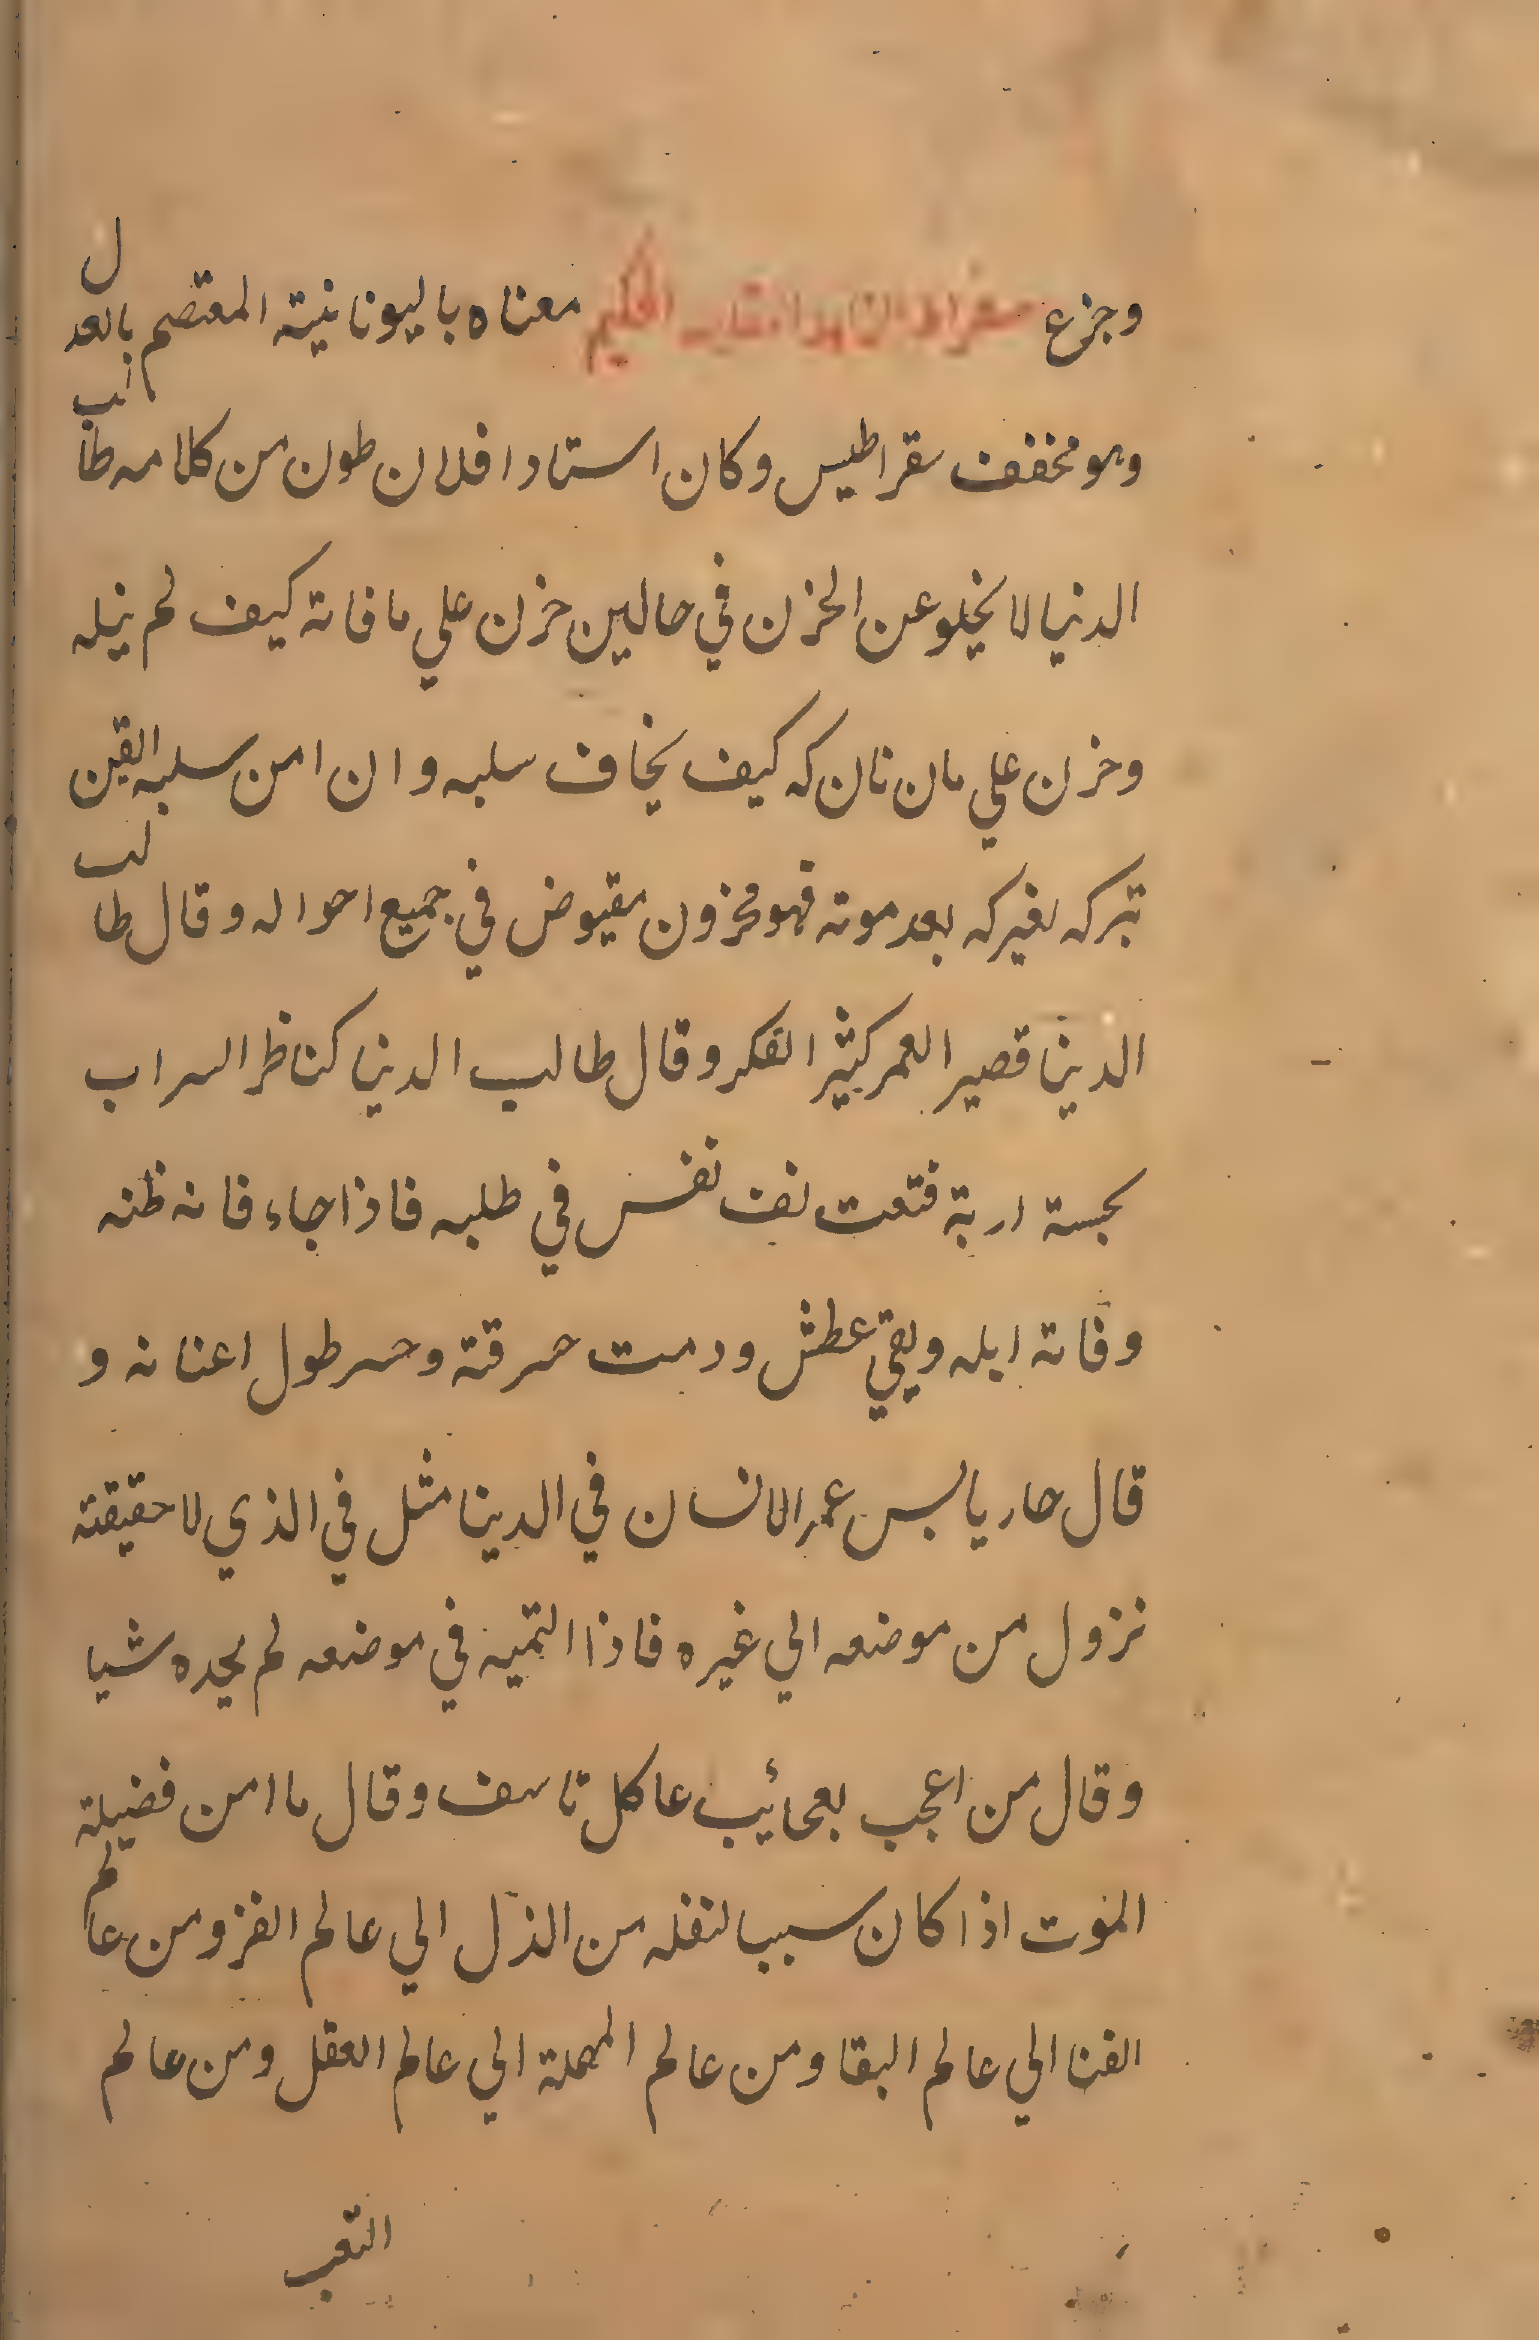 وجزع سقراط الزاهد الحكيم معناه باليونانية المعتصم بالعدل
وهو مخفف سقراطيس وكان استاد افلان طون من كلامه طالب
الدنيا لا يخلو عن الحزن في حالين حزن علي ما فاته كيف لم ينله
وحزن علي مان نان كه كيف يخاف سلبه وان امن سلبه القين
تبركه لغيركه بعد موته فهو محزون مقيوض في جميع احواله وقال طالب
الدينا قصير العمر كثير الفكر وقال طالب الدينا كناظر السراب
بحسة اربة فتعت نف نفس في طلبه فاذا جاء فانه ظنه
وفاته ابله وبقي عطش ودمت حسرقته وحسر طول اعنانه و
قال حار يا لبس عمر الانسان في الدينا مثل في الذي لا حقيقته
نزول من موضعه الي غيره فاذا التميه في موضعه لم يجده شيا
وقال من اعجب بعجائيب عا كل تاسف وقال ما امن فضيلة
الموت اذا كان سببا لنقله من الذل الي عالم العز ومن عالم
الفنا الي عالم البقا ومن عالم المهملة الي عالم العقل ومن عالم
التعب